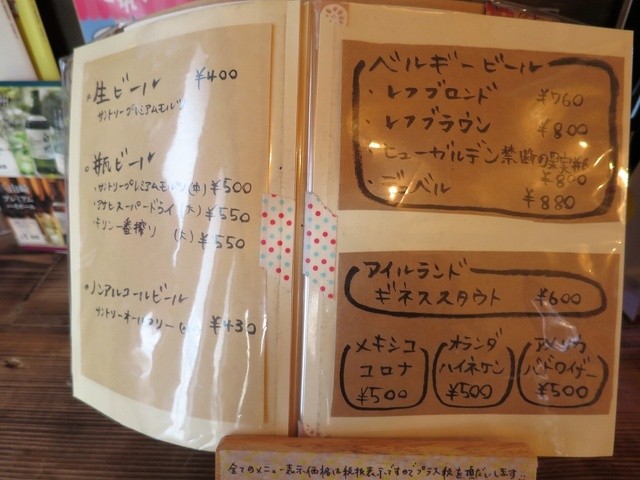 ・生ビール ¥400
サントリープレミアムモルツ
・瓶ビール
・サントリープレミアムモルツ(中)¥500
・アサヒスーパードライ(大)¥550
・キリン一番搾り (大)¥550
・ノンアルコールビール
サントリーオールフリー ¥430
ベルギービール
・レフブロンド ¥760
・レフブラウン ¥800
・ヒューガルデン禁断の果実
・デュベル ¥880
アイルランド
ギネススタウト ¥600
メキシコ
コロナ
¥500
オランダ
ハイネケン
¥500
アメリカ
バドワイザー
¥500
全てのメニュー表示価格は税抜表示ですのでプラス税を頂だいします。